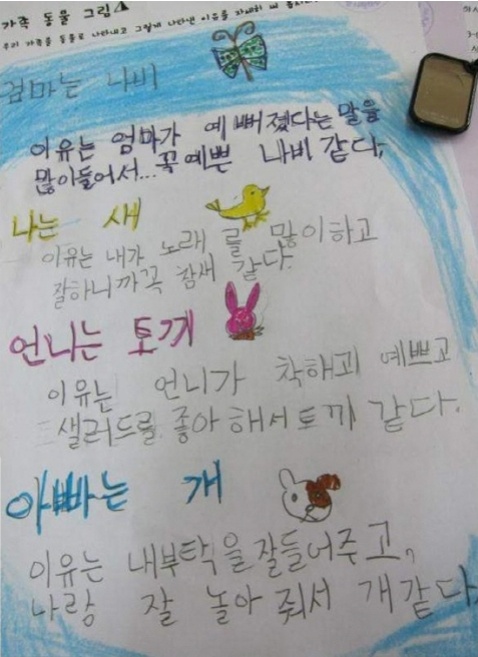 가족 동물 그림
우리 가족을 동물로 나타내고 그렇게 나타낸 이유를 자세히 써 봅시다
엄마는 나비
이유는 엄마가 예뻐졌다는 말을
많이들어서... 꼭 예쁜 나비 같다,
나는 새
이유는 내가 노래를 많이하고
잘하니까꼭 참새 같다.
언니는 토끼
이유는 언니가 착하고 예쁘고
샐러드를 좋아해서토끼 같다.
아빠는 개
이유는 내부탁을잘들어주고,
나랑 잘 놀아 줘서 개같다.